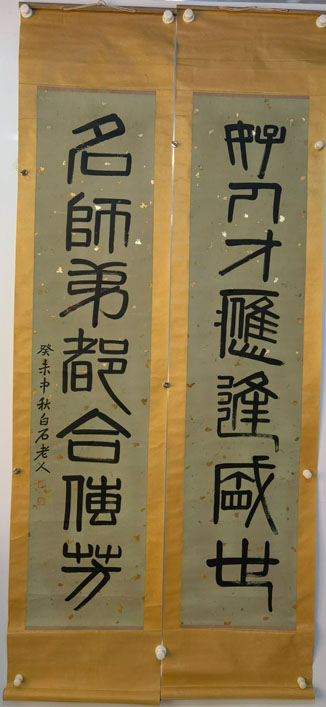 好人才應逢盛世
名師弟都合傳芳
癸未中秋白石老人